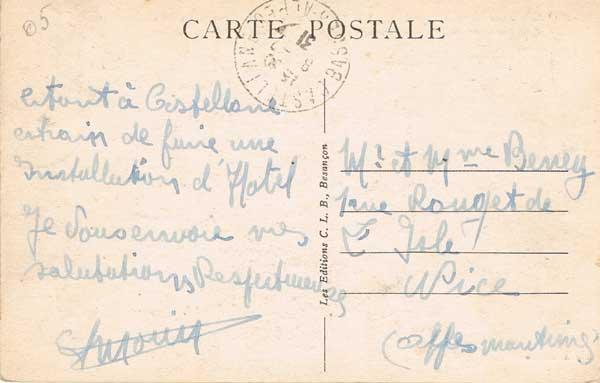 05
CARTE POSTALE
CASTELLANE
BASSES-ALPES
etant à Castellane
entrain de faire une
Installation d'Hotel
je vous envoie mes
salutations Respectueuses
Les Editions C. L. B., Besançon
Mr et Mme Beney
rue Rouget de
L'Isle
Nice
(Alpes maritimes)